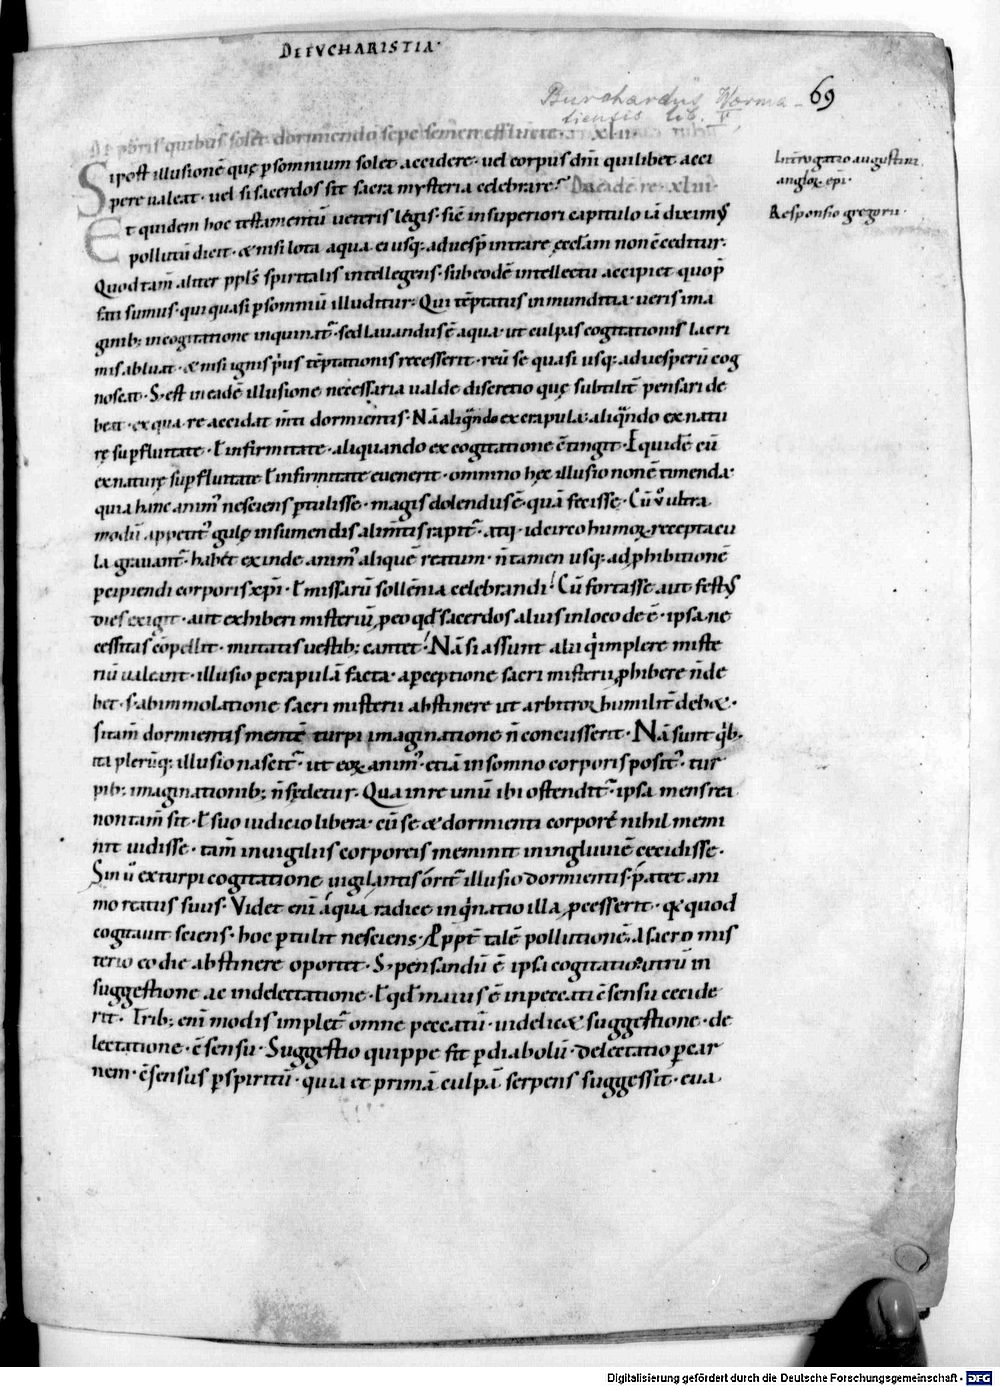 DE EVCHARISTIA·
Burchardus Worma-
tiensis lib. V,
69
De p̄bris quibus solet dormiendo sepe semen effluere xlii
Si post illusionē quę ꝑ somnium solet accidere· uel corpus dn̄i quilibet acci
pere ualeat· uel si sacerdos sit sacra mysteria celebrare?
Int̄rogatio augustini
angloꝝ ep̄i·
Responsio gregorii·
Et quidem hoc testamentū ueteris legis· sic̄ in superiori capitulo iā diximꝰ
pollutū dicit· & nisi lota aqua ei usq; ad uesꝑ intrare ęcclam non c̄ceditur·
Quod tam̄ aliter ppl̄s spiritalis intellegens· sub eodē intellectu accipiet quo p̄
fati sumus· qui quasi ꝑ somniū illuditur· Qui tēptatus inmunditia· ueris ima
ginib; in cogitatione inquinat᷑· sed lauandus ē aqua· ut culpas cogitationis lacri
mis abluat· & nisi ignis p̄us tēptationis recesserit· reū se quasi usq; ad uesperū cog
noscat· S; est in eadē illusione necessaria ualde discretio quę subtilit̄ pensari de
beat· ex qua re accidat m̄ti dormientis· Nā aliq̄ndo ex crapula· aliq̄ndo ex natu
rę suꝑfluitate· ł infirmitate· aliquando ex cogitatione c̄tingit· Equidē cū
ex naturę suꝑfluitate ł infirmitate euenerit· omnino hęc illusio non ē timenda·
quia hanc anim᷒ nesciens ꝑtulisse· magis dolendus ē· quā fecisse· Cū uͦ ultra
modū appetit᷒ gulę in sumendis alim̄tis rapit᷑· atq; idcirco humoꝝ receptacu
la grauant᷑· habet exinde anim᷒ aliquē reatum· n̄ tamen usq; ad ꝓhibitionē
ꝑcipiendi corporis xp̄i· ł missarū sollēnia celebrandi! Cū fortasse aut festꝰ
dies exigit· aut exhiberi misteriū, ꝑeo qd̄ sacerdos alius in loco de ē· ipsa ne
cessitas cōpellit· mutatis uestib; cantet! Nā si assunt alii qͥ implere miste
riū ualeant· illusio ꝑ crapulā facta· a ꝑceptione sacri misterii ꝓhibere n̄ de
bet· s; ab immolatione sacri misterii abstinere ut arbitror humilit̄ deb&·
si tam̄ dormientis mentē turpi imaginatione n̄ concusserit· Nā sunt qͥb;
ita pleruq; illusio nascit᷑· ut eoꝝ anim᷒· etiā in somno corporis posit᷒· tur
pib; imaginationib; n̄ fędetur· Qua in re unū ibi ostendit᷑· ipsa mens rea
non tam̄ sit· ł suo iudicio libera· cū se & dormienti corpore nihil memi
nit uidisse· tam̄ in uigiliis corporeis meminit in ingluuiē cecidisse·
Sin uͦ ex turpi cogitatione uigilantis orit᷑ illusio dormientis· patet ani
mo reatus suus· Videt eni᷒ a qua radice inqͥnatio illa ꝓcesserit· & quod
cogitauit sciens· hoc ꝑtulit nesciens· & ppt̄ talē pollutionē a sacro mis
terio eo die abstinere oportet· S; pensandū ē ipsa cogitatio· utrū in
suggestione ac in delectatione· ł qd̄ maius ē in peccati c̄sensu cecide
rit· Trib; eni᷒ modis implet᷑ omne peccatū· uidelic& suggestione· de
lectatione· c̄sensu· Suggestio quippe fit ꝑ diabolū· delectatio ꝑ car
nem· c̄sensus ꝑ spiritū· quia et primā culpā serpens suggessit· eua
Digitalisierung gefördert durch die Deutsche Forschungsgemeinschaft - DFG